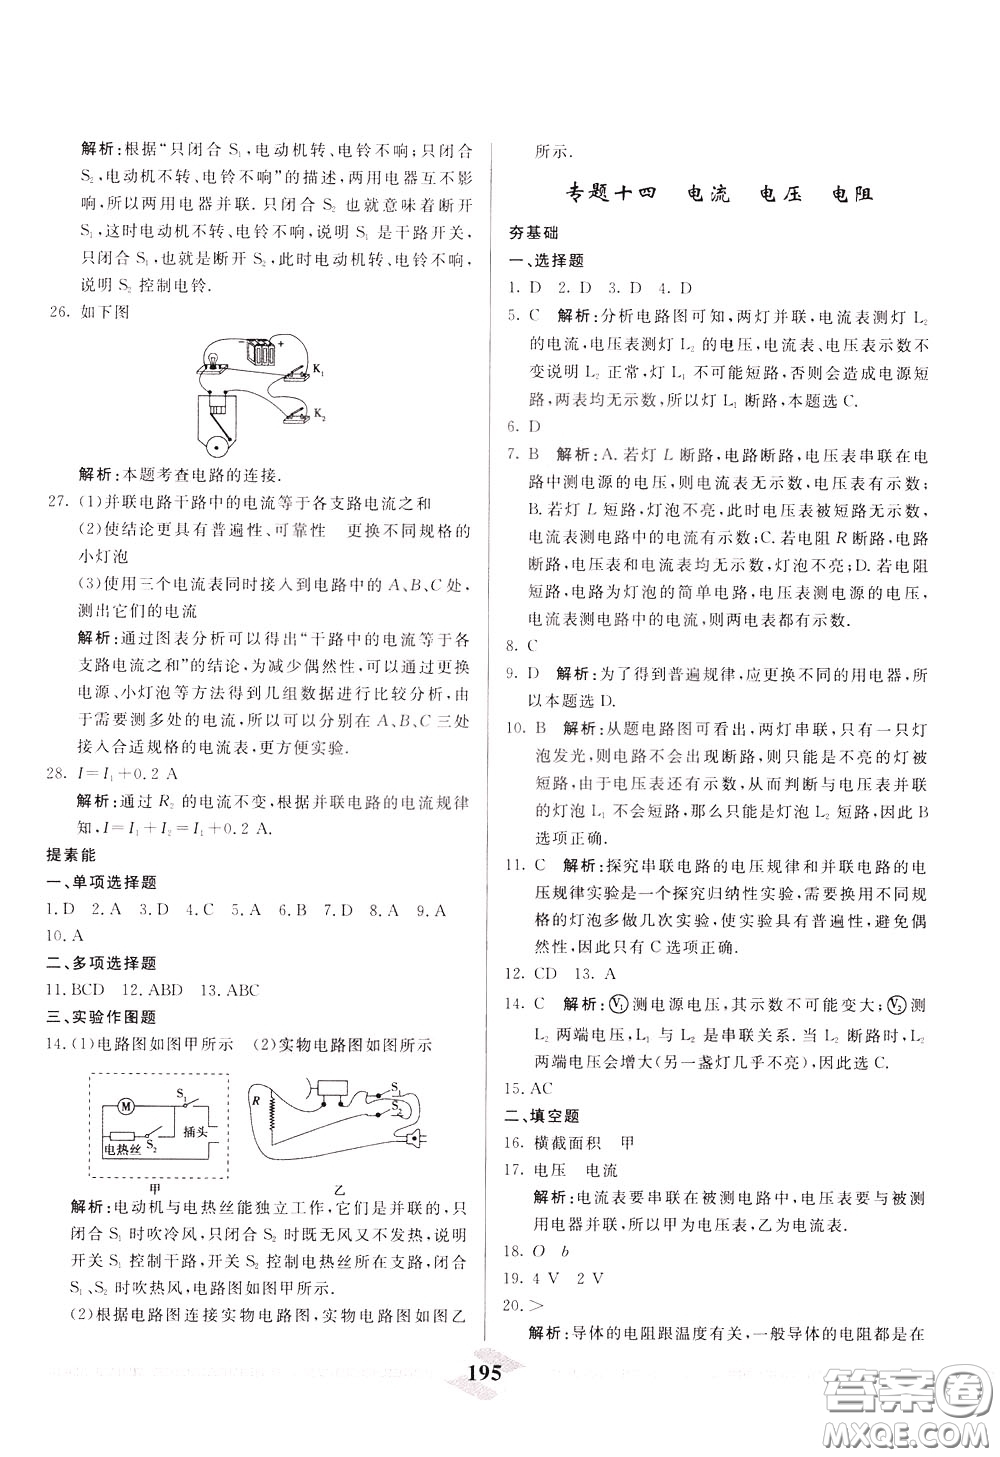 解析:根据“只闭合 S₁,电动机转、电铃不响;只闭合
S₂,电动机不转、电铃不响”的描述,两用电器互不影
响,所以两用电器并联. 只闭合 S₂ 也就意味着断开
S₁,这时电动机不转、电铃不响,说明 S₁ 是干路开关,
只闭合 S₁,也就是断开 S₂,此时电动机转、电铃不响,
说明 S₂ 控制电铃.
26. 如下图
+
K₁
K₂
解析:本题考查电路的连接.
27. (1)并联电路干路中的电流等于各支路电流之和
(2)使结论更具有普遍性、可靠性 更换不同规格的
小灯泡
(3)使用三个电流表同时接入到电路中的 A、B、C 处,
测出它们的电流
解析:通过图表分析可以得出“干路中的电流等于各
支路电流之和”的结论,为减少偶然性,可以通过更换
电源、小灯泡等方法得到几组数据进行比较分析,由
于需要测多处的电流,所以可以分别在 A、B、C 三处
接入合适规格的电流表,更方便实验.
28. I=I₁+0.2 A
解析:通过 R₂ 的电流不变,根据并联电路的电流规律
知,I=I₁+I₂=I₁+0.2 A.
提素能
一、单项选择题
1. D 2. A 3. D 4. C 5. A 6. B 7. D 8. A 9. A
10. A
二、多项选择题
11. BCD 12. ABD 13. ABC
三、实验作图题
14. (1)电路图如图甲所示 (2)实物电路图如图所示
M
S₁
插头
电热丝 S₂
甲
R
S₁
S₂
乙
解析:电动机与电热丝能独立工作,它们是并联的,只
闭合 S₁ 时吹冷风,只闭合 S₂ 时既无风又不发热,说明
开关 S₁ 控制干路,开关 S₂ 控制电热丝所在的支路,闭
合 S₁、S₂ 时吹热风,电路图如图甲所示.
(2)根据电路图连接实物电路图,实物电路图如图乙
所示.
专题十四 电流 电压 电阻
夯基础
一、选择题
1. D 2. D 3. D 4. D
5. C 解析:分析电路图可知,两灯并联,电流表测灯 L₂
的电流,电压表测灯 L₂ 的电压,电流表、电压表示数不
变说明 L₂ 正常,灯 L₁ 不可能短路,否则会造成电源短
路,两表均无示数,所以灯 L₁ 断路,本题选 C.
6. D
7. B 解析:A. 若灯 L 断路,电路断路,电压表串联在电
路中测电源的电压,则电流表无示数,电压表有示数;
B. 若灯 L 短路,灯泡不亮,此时电压表被短路无示数,
电流表测电路中的电流有示数;C. 若电阻 R 断路,电路
断路,电压表和电流表均无示数,灯泡不亮;D. 若电阻
短路,电路为灯泡的简单电路,电压表测电源的电压,
电流表测电路中的电流,则两电表都有示数.
8. C
9. D 解析:为了得到普遍规律,应更换不同的用电器,所
以本题选 D.
10. B 解析:从题电路图可看出,两灯串联,只有一只灯
泡发光,则电路不会出现断路,则只能是不亮的灯被
短路,由于电压表还有示数,从而判断与电压表并联
的灯泡 L₁ 不会短路,那么只能是灯泡 L₂ 短路,因此 B
选项正确.
11. C 解析:探究串联电路的电压规律和并联电路的电
压规律实验是一个探究归纳性实验,需要换用不同规
格的灯泡多做几次实验,使实验具有普遍性,避免偶
然性,因此只有 C 选项正确.
12. CD 13. A
14. C 解析:V₁测电源电压,其示数不可能变大;V₂测
L₂ 两端电压,L₁ 与 L₂ 是串联关系. 当 L₂ 断路时,L₂
两端电压会增大(另一盏灯几乎不亮),因此选 C.
15. AC
二、填空题
16. 横截面积 甲
17. 电压 电流
解析:电流表要串联在被测电路中,电压表要与被测
用电器并联,所以甲为电压表,乙为电流表.
18. O b
19. 4 V 2 V
20. >
解析:导体的电阻跟温度有关,一般导体的电阻都是在
195
答案卷
MXQE.COM